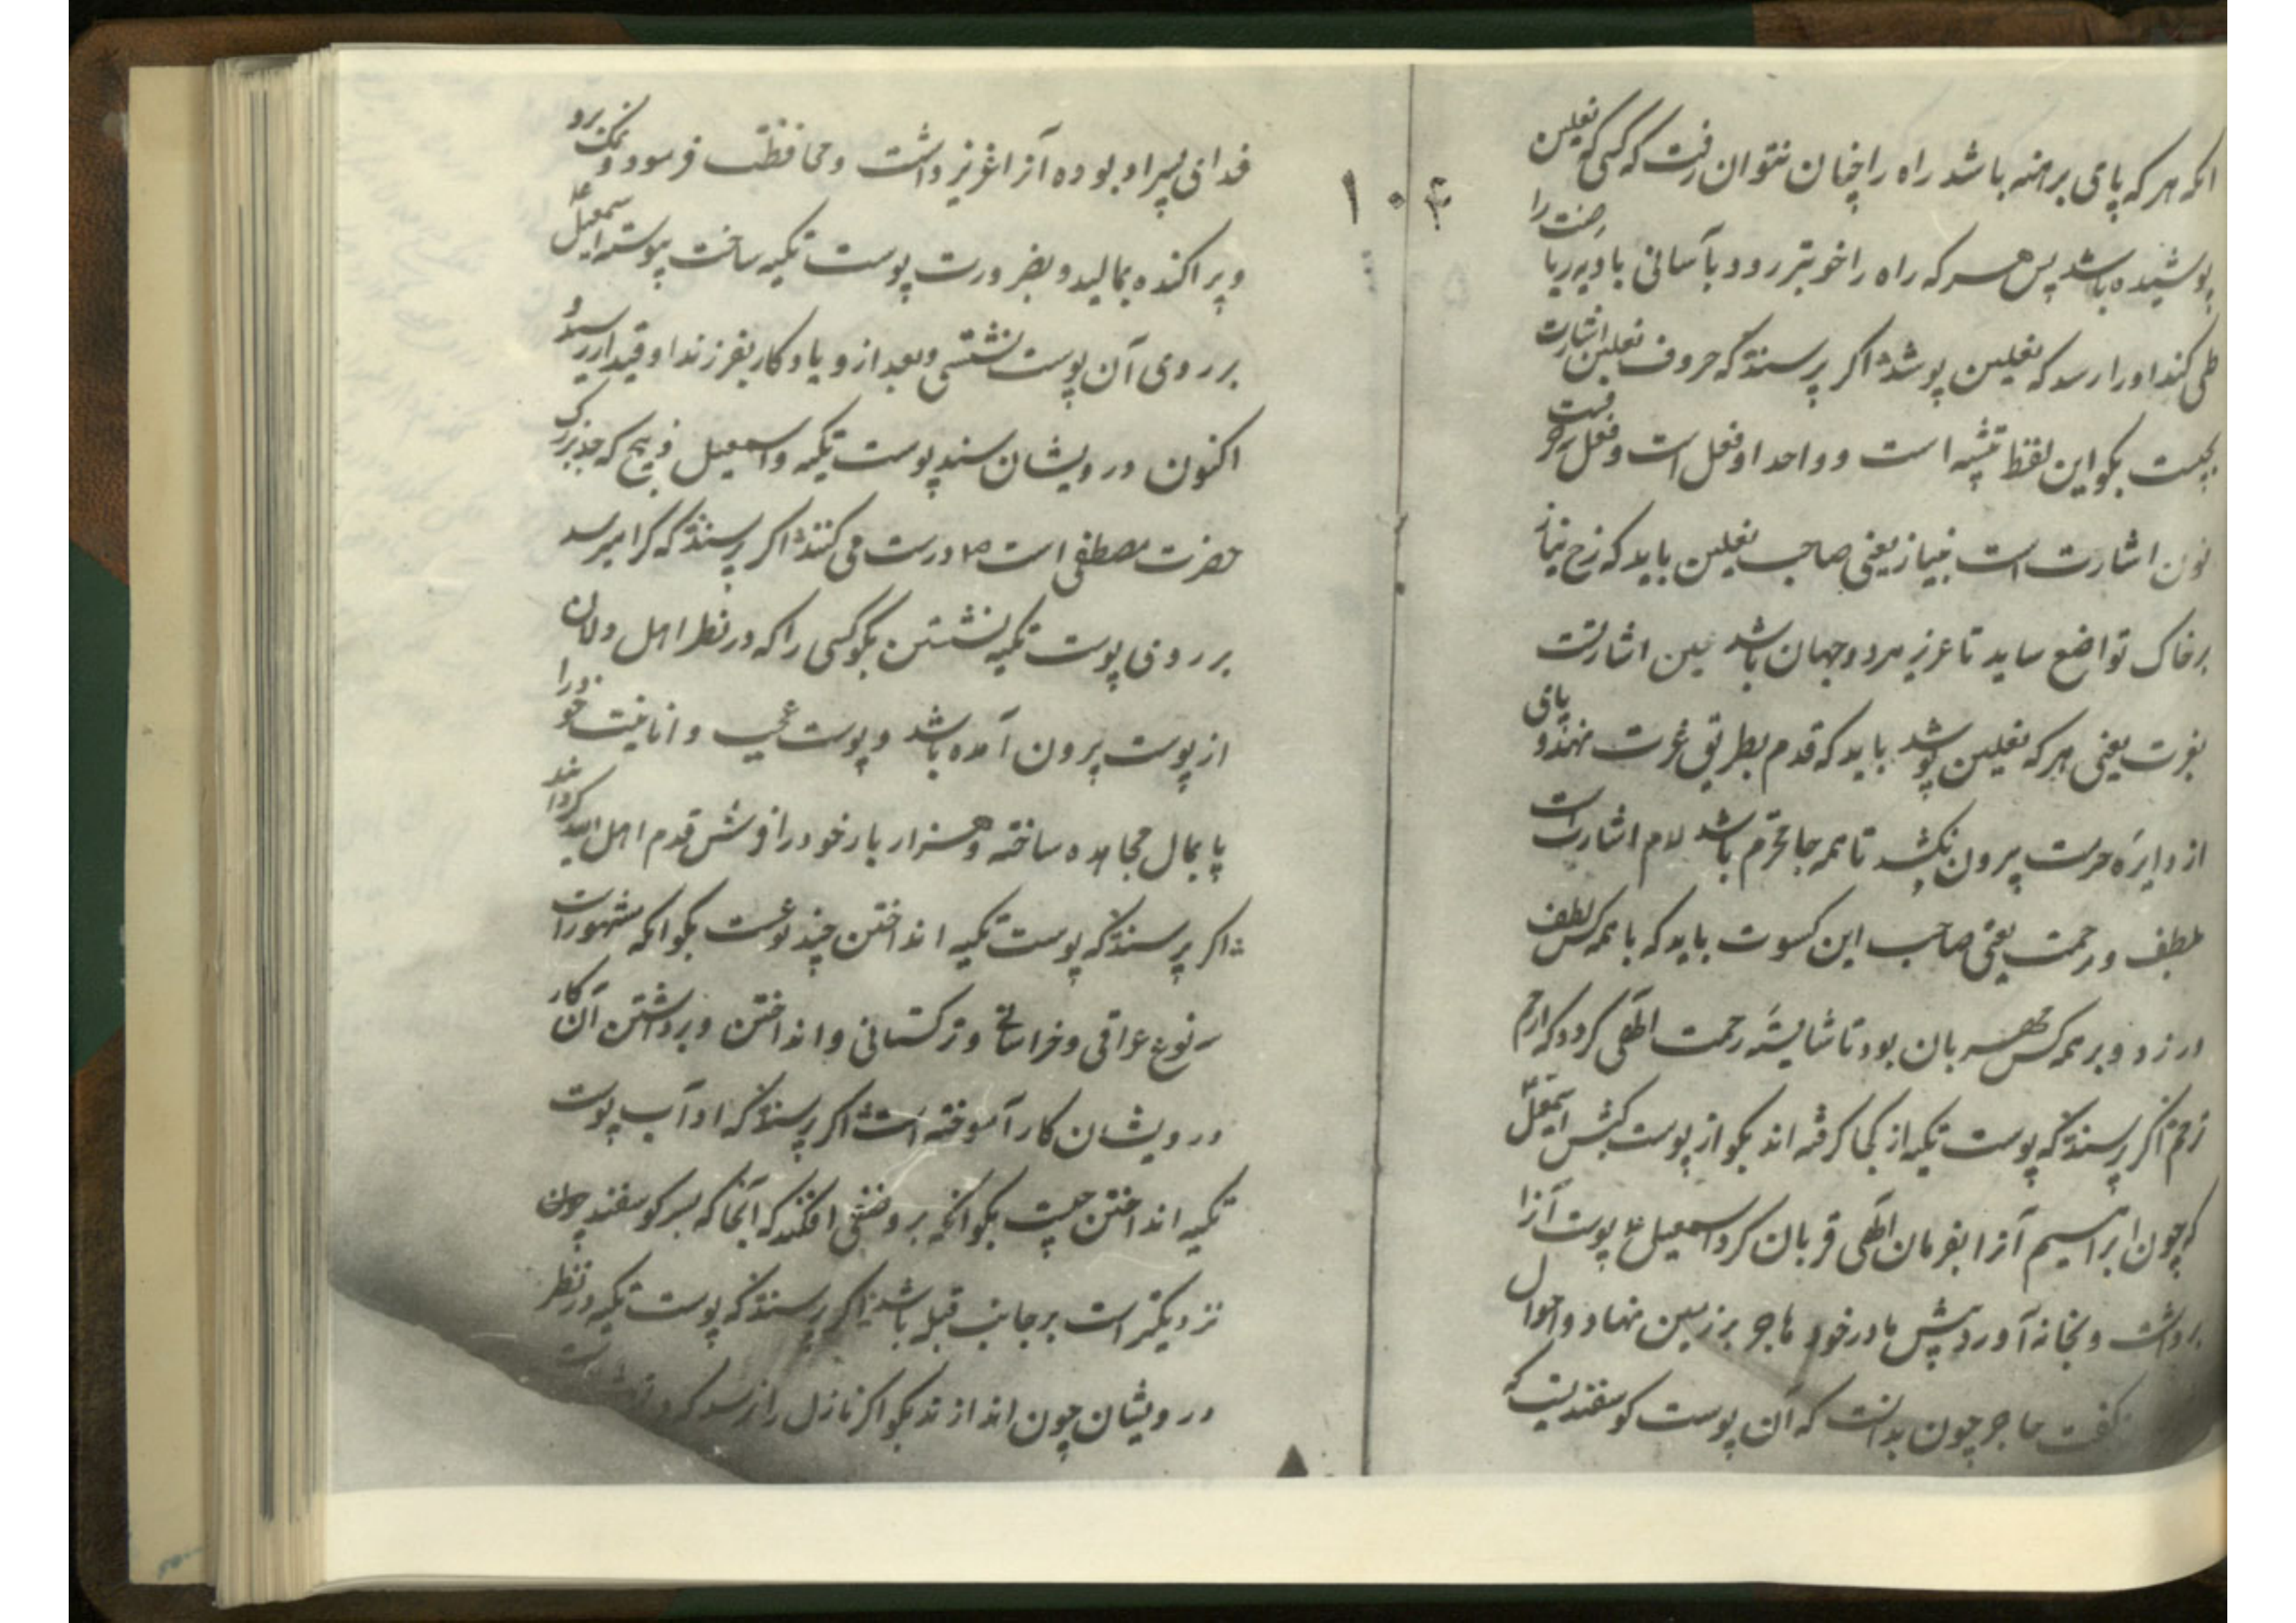 انکه هر که پای برهنه باشد راه را چنان نتوان رفت که کسی که نعلین
پوشیده باشد پس هر که راه را خوبتر رود بآسانی بادیه ریاضت را
طی کند او را رسد که نعلین پوشد اکر پرسند که حروف نعلین اشارت
بچیست بکو این لفظ تثنیه است و واحد او نعل است و نعل سه حرفست
نون اشارت است بنیاز یعنی صاحب نعلین باید که رخ نیاز
بر خاک تواضع ساید تا عزیز هر دو جهان باشد عین اشارتست
بعزت یعنی هر که نعلین پوشد باید که قدم بطریق عزت نهد و پای
از دایره حرمت بیرون نکشد تا همه جا محترم باشد لام اشارتست
بلطف و رحمت یعنی صاحب این کسوت باید که با همه کس لطف
ورزد و بر همه کس مهربان بود تا شایسته رحمت الهی کردد که ارحم
ترحم اکر پرسند که پوست تکیه از کجا کرفته اند بکو از پوست کبش اسمعیل
که چون ابراهیم آنرا بفرمان الهی قربان کرد اسمعیل ع پوست آنرا
برداشت و بخانه آورد پیش مادر خود هاجر بر زمین نهاد و احوال
بکفت هاجر چون بدانست که آن پوست کوسفندیست که
۱۰۴
فدائی پسر او بوده آنرا عزیز داشت و محافظت فرمود و نمک برو
پراکنده بمالید و بضرورت پوست تکیه ساخت پیوسته اسمعیل ع
بر روی آن پوست نشستی و بعد ازو یادکار بفرزند او قیدار رسید و
اکنون درویشان سند پوست تکیه و اسمعیل ذبیح که جد بزرک
حضرت مصطفی است ص درست می کنند اکر پرسند که کرا میرسد
بر روی پوست تکیه نشستن بکو کسی را که در نظر اهل دلان
از پوست بیرون آمده باشد و پوست عجب و انانیت خود را
پایمال مجاهده ساخته و هزار بار خود را فرش قدم اهل الله کرداند
اکر پرسند که پوست تکیه انداختن چند نوعست بکو انکه مشهور است
سه نوع عراقی و خراسانی و ترکستانی و انداختن و برداشتن آن کار
درویشان کار آموخته است اکر پرسند که آداب پوست
تکیه انداختن چیست بکو انکه بر وضعی افکند که آنجا که سر کوسفند
نزدیکتر است بر جانب قبله باشد اکر پرسند که پوست تکیه در نظر
درویشان چون اندازند بکو اکر نازل را رسد که